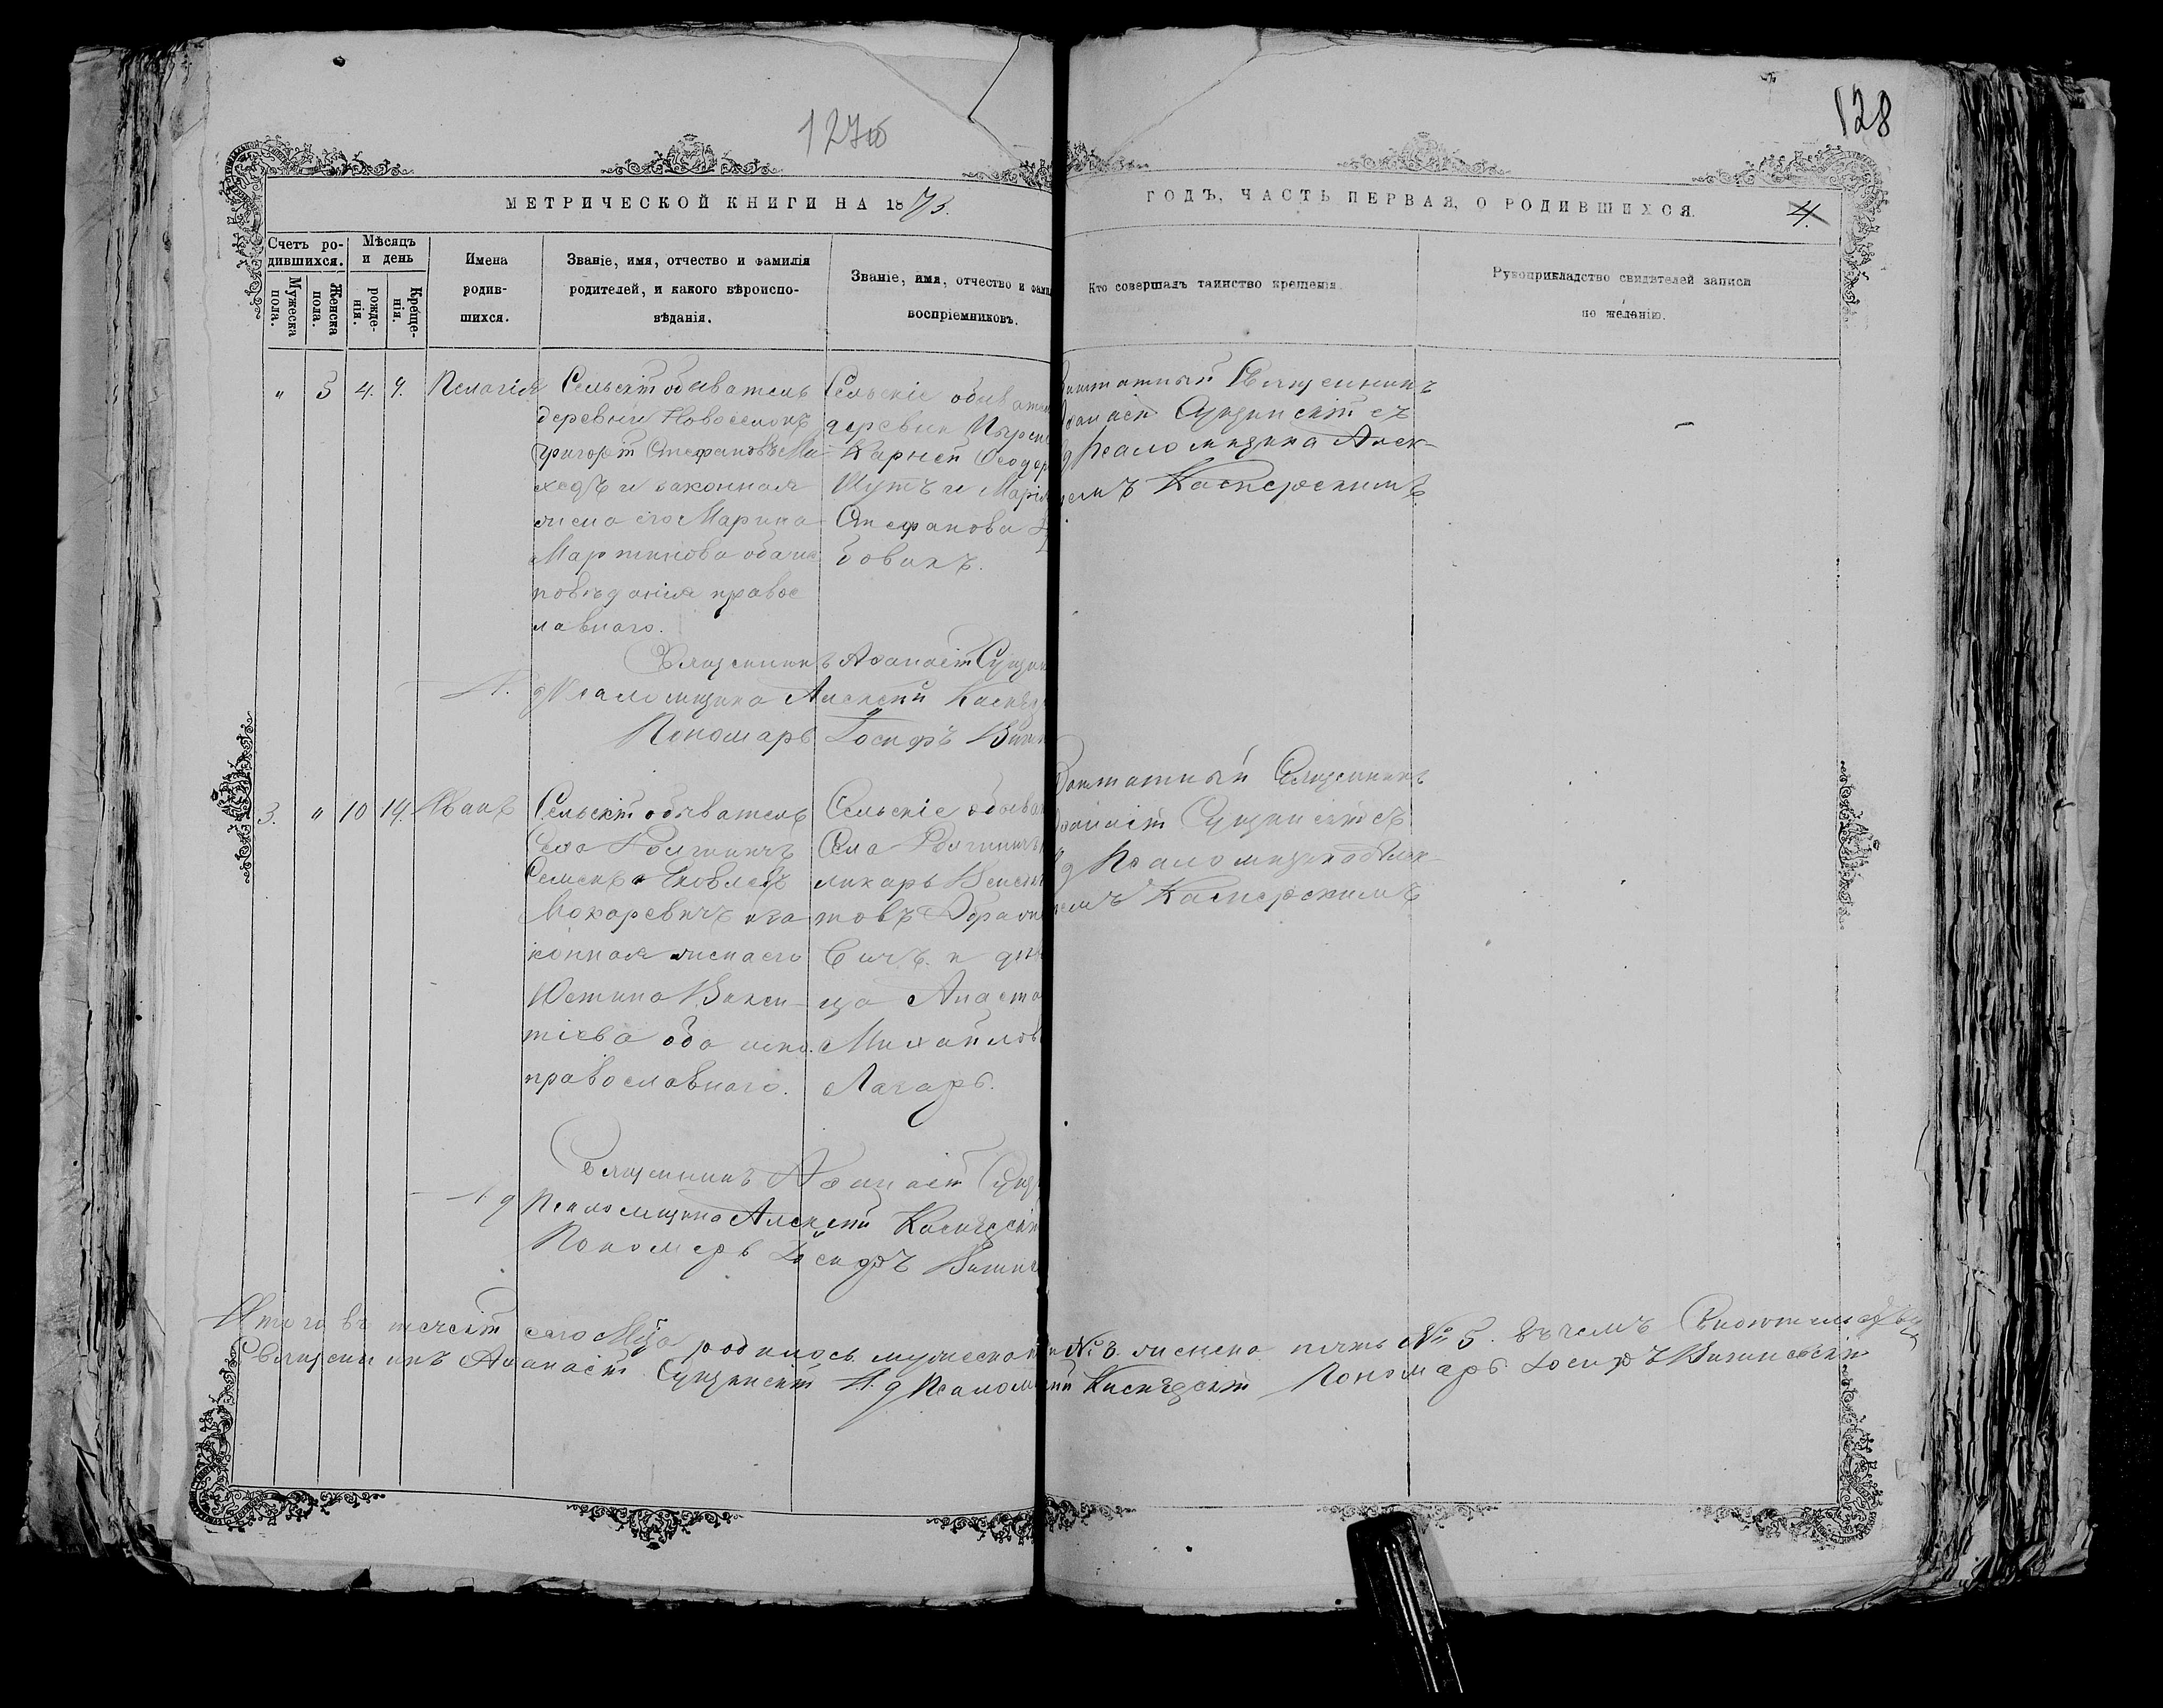 127об
128
МЕТРИЧЕСКОЙ КНИГИ НА 1873.
ГОДЪ, ЧАСТЬ ПЕРВАЯ, О РОДИВШИХСЯ.
4.
Счетъ ро-
дившихся.
Мужеска
пола.
Женска
пола.
Мѣсяцъ
и день
рожде-
нія.
Креще-
нія.
Имена
родив-
шихся.
Званіе, имя, отчество и фамилія
родителей, и какого вѣроиспо-
вѣданія.
Званіе, имя, отчество и фами
воспріемниковъ.
Кто совершалъ таинство крещенія.
Рукоприкладство свидѣтелей записи
по желанію.
" 5 4. 9. Пелагія
Сельскій обыватель
деревни Новоселокъ
Григорій Стефановъ Ма-
ходъ и законная
жена его Марина
Мартинова оба ис
повѣданія правос
лавнаго.
Сельскіе обывател
деревни
Карней Ѳеодор
Шутъ и Марія
Стефанова
бовихъ.
Священникъ
Аѳанасій Сущинскій съ
д Псаломщика Алек-
ѣемъ Касперскимъ
Священникъ Аѳанасій Сущин
И. д Псаломщика Алексѣй Каспер
Пономарь Іосифъ
3. " 10 14. Иванъ
Сельскій обыватель
Села
Семенъ Яковлевъ
Мокаревичъ и за
конная жена его
Юстина Викен-
тіева оба испо.
православнаго.
Сельскіе обыва
Села
Викен
товъ Абрамо
вичъ и дѣв
ца Анаста
Михайлов
Лагарь.
Священникъ
Аѳанасій Сущинскій съ
д Псаломщика Алек-
ѣемъ Касперскимъ
Священникъ Аѳанасій Сущ
И д Псаломщика Алексѣй Касперскі
Пономарь Іосифъ
Итого въ сего М-ца родилось мужеска № 3. женска пять № 5. въ чемъ
Священникъ Аѳанасій Сущинскій И. д Псалом Касперскій Пономарь Іосифъ